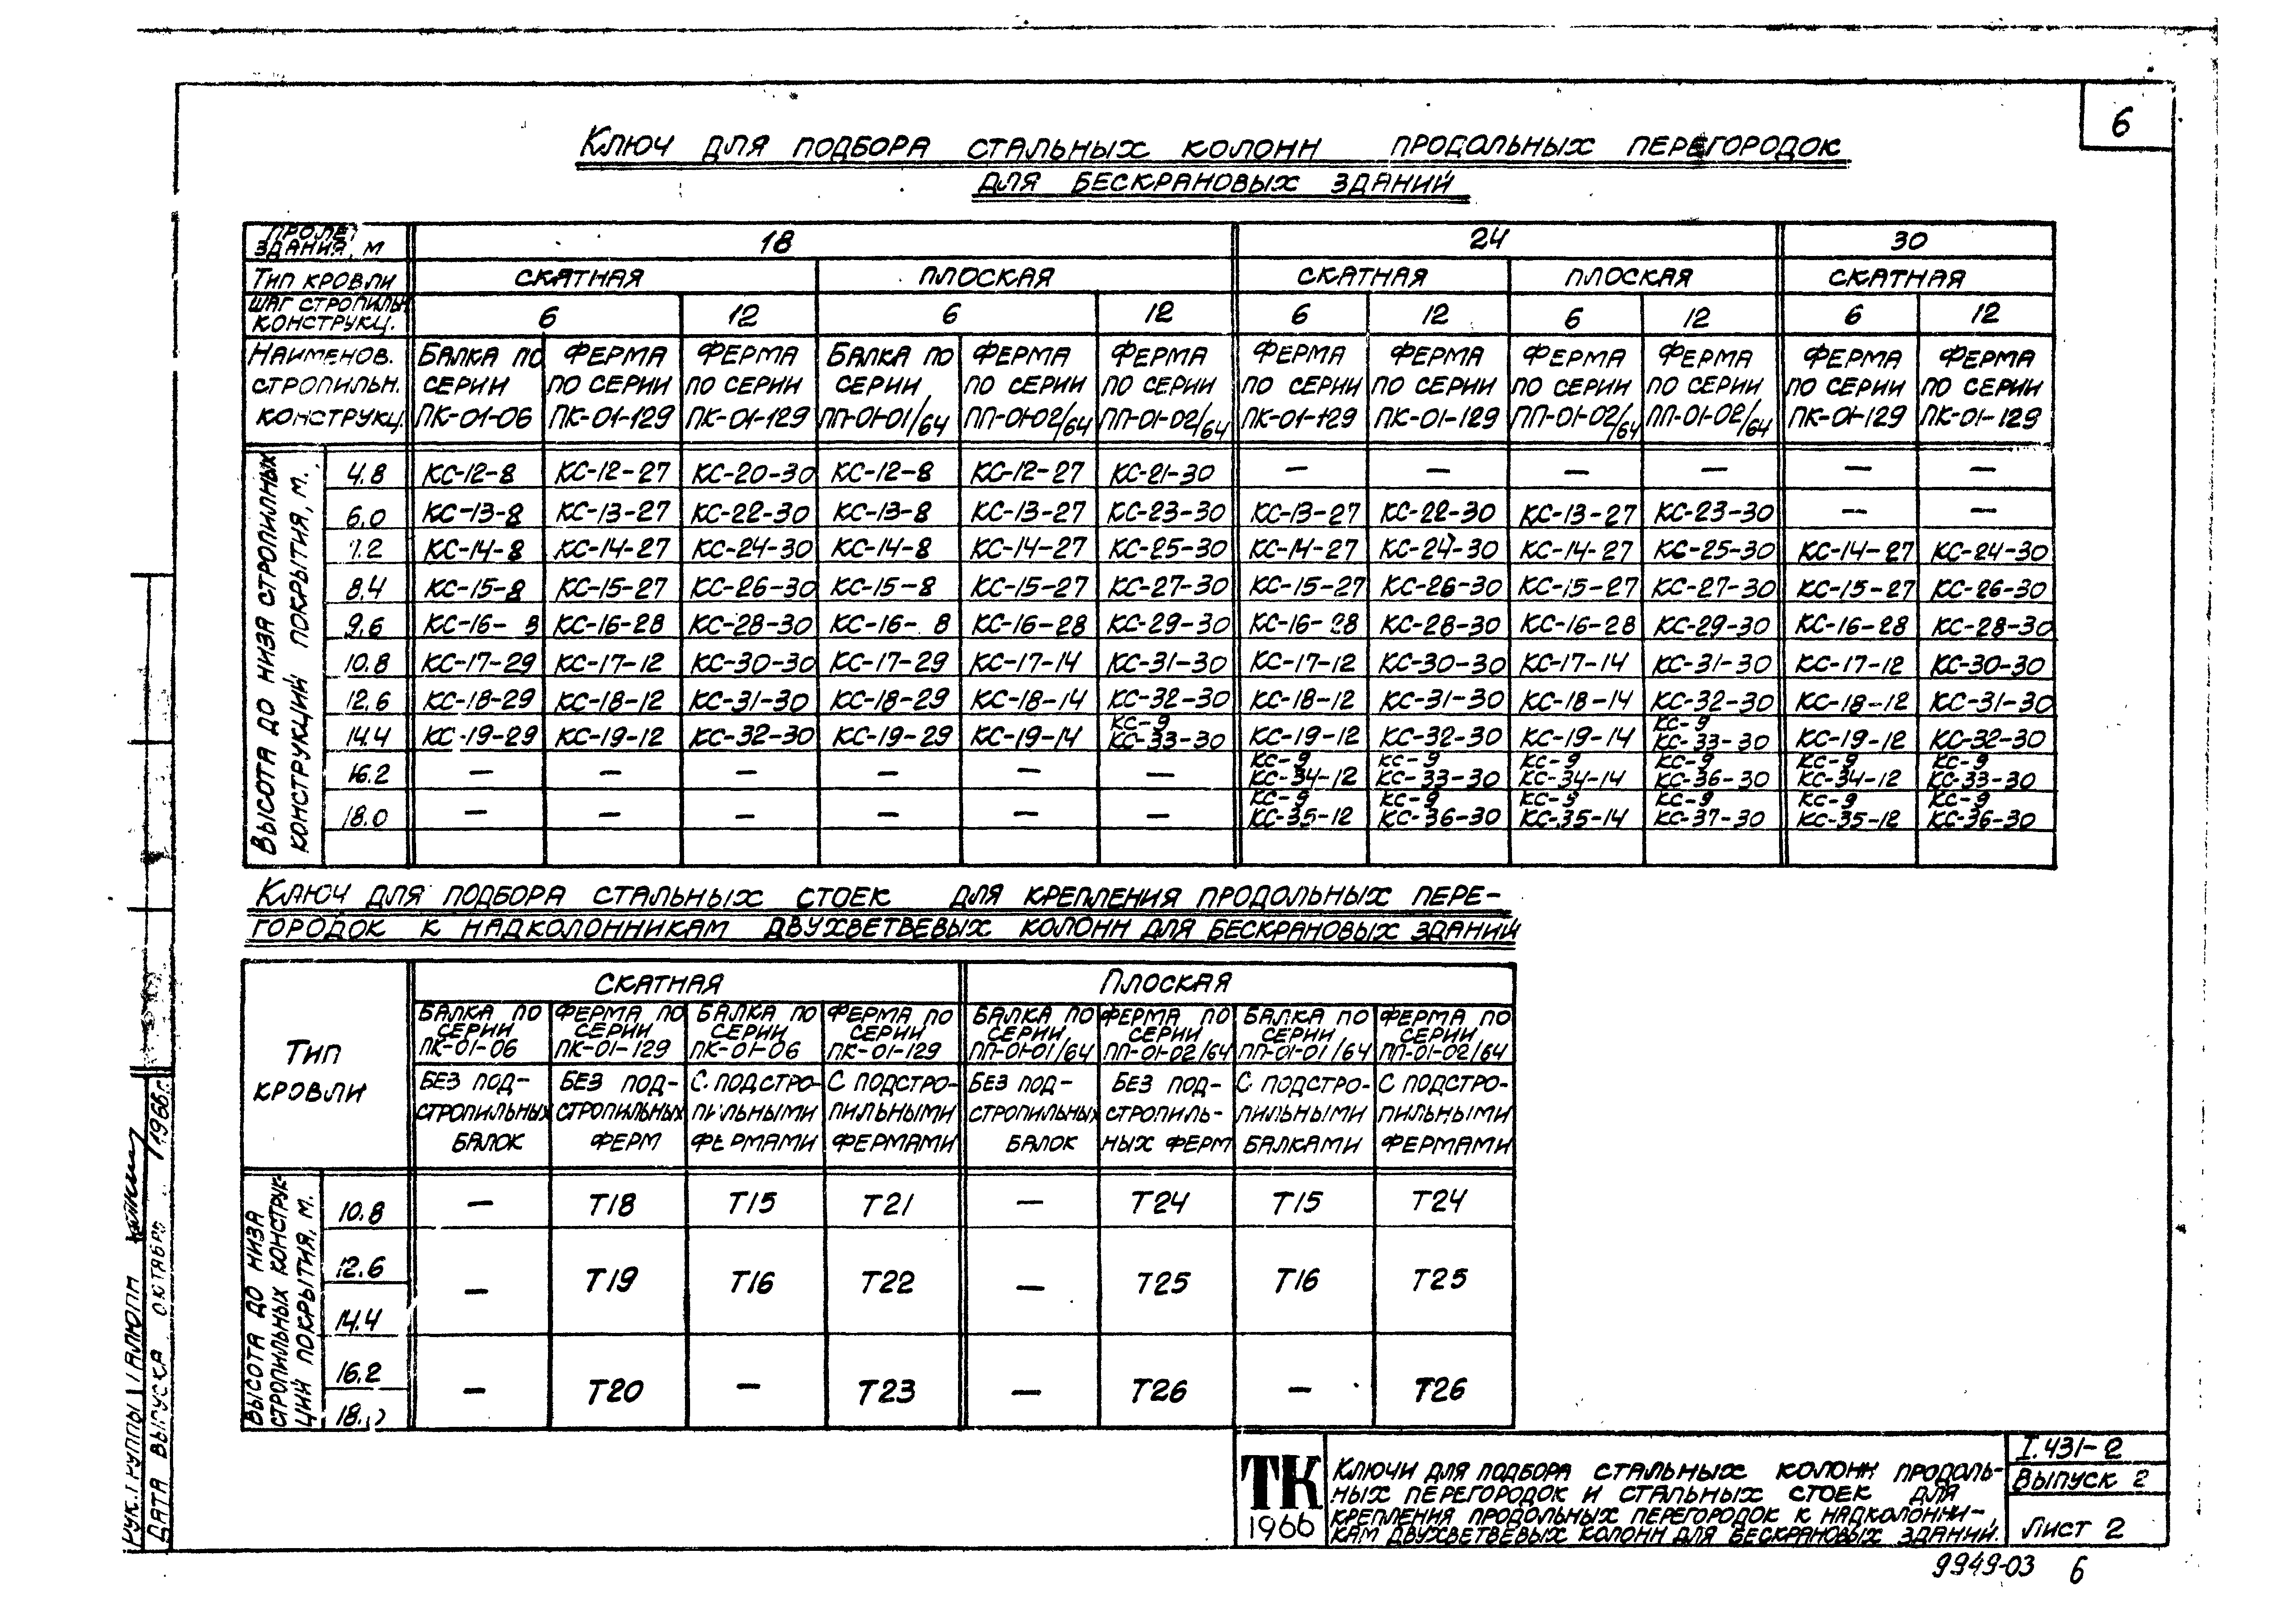 6
Ключ для подбора стальных колонн продольных перегородок
для бескрановых зданий
Пролет здания, м | 18 | 24 | 30
Тип кровли | скатная | плоская | скатная | плоская | скатная
Шаг стропильн. конструкц. | 6 | 12 | 6 | 12 | 6 | 12 | 6 | 12 | 6 | 12
Наименов. стропильн. конструкц. | Балка по серии ПК-01-06 | Ферма по серии ПК-01-129 | Ферма по серии ПК-01-129 | Балка по серии ПП-01-01/64 | Ферма по серии ПП-01-02/64 | Ферма по серии ПП-01-02/64 | Ферма по серии ПК-01-129 | Ферма по серии ПК-01-129 | Ферма по серии ПП-01-02/64 | Ферма по серии ПП-01-02/64 | Ферма по серии ПК-01-129 | Ферма по серии ПК-01-129
Высота до низа стропильных конструкций покрытия, м.
4.8 | КС-12-8 | КС-12-27 | КС-20-30 | КС-12-8 | КС-12-27 | КС-21-30 | — | — | — | — | — | —
6.0 | КС-13-8 | КС-13-27 | КС-22-30 | КС-13-8 | КС-13-27 | КС-23-30 | КС-13-27 | КС-22-30 | КС-13-27 | КС-23-30 | — | —
7.2 | КС-14-8 | КС-14-27 | КС-24-30 | КС-14-8 | КС-14-27 | КС-25-30 | КС-14-27 | КС-24-30 | КС-14-27 | КС-25-30 | КС-14-27 | КС-24-30
8.4 | КС-15-8 | КС-15-27 | КС-26-30 | КС-15-8 | КС-15-27 | КС-27-30 | КС-15-27 | КС-26-30 | КС-15-27 | КС-27-30 | КС-15-27 | КС-26-30
9.6 | КС-16-8 | КС-16-28 | КС-28-30 | КС-16-8 | КС-16-28 | КС-29-30 | КС-16-28 | КС-28-30 | КС-16-28 | КС-29-30 | КС-16-28 | КС-28-30
10.8 | КС-17-29 | КС-17-12 | КС-30-30 | КС-17-29 | КС-17-14 | КС-31-30 | КС-17-12 | КС-30-30 | КС-17-14 | КС-31-30 | КС-17-12 | КС-30-30
12.6 | КС-18-29 | КС-18-12 | КС-31-30 | КС-18-29 | КС-18-14 | КС-32-30 | КС-18-12 | КС-31-30 | КС-18-14 | КС-32-30 | КС-18-12 | КС-31-30
14.4 | КС-19-29 | КС-19-12 | КС-32-30 | КС-19-29 | КС-19-14 | КС-9 КС-33-30 | КС-19-12 | КС-32-30 | КС-19-14 | КС-9 КС-33-30 | КС-19-12 | КС-32-30
16.2 | — | — | — | — | — | — | КС-9 КС-34-12 | КС-9 КС-33-30 | КС-9 КС-34-14 | КС-9 КС-36-30 | КС-9 КС-34-12 | КС-9 КС-33-30
18.0 | — | — | — | — | — | — | КС-9 КС-35-12 | КС-9 КС-36-30 | КС-9 КС-35-14 | КС-9 КС-37-30 | КС-9 КС-35-12 | КС-9 КС-36-30
Ключ для подбора стальных стоек для крепления продольных пере-
городок к надколонникам двухветвевых колонн для бескрановых зданий
Тип кровли | скатная | Плоская
Балка по серии ПК-01-06 | Ферма по серии ПК-01-129 | Балка по серии ПК-01-06 | Ферма по серии ПК-01-129 | Балка по серии ПП-01-01/64 | Ферма по серии ПП-01-02/64 | Балка по серии ПП-01-01/64 | Ферма по серии ПП-01-02/64
Без под-стропильных балок | Без под-стропильных ферм | С подстро-пильными фермами | С подстро-пильными фермами | Без под-стропильных балок | Без под-стропиль-ных ферм | С подстро-пильными балками | С подстро-пильными фермами
Высота до низа стропильных конструк-ций покрытия, м.
10.8 | — | Т18 | Т15 | Т21 | — | Т24 | Т15 | Т24
12.6 14.4 | — | Т19 | Т16 | Т22 | — | Т25 | Т16 | Т25
16.2 18.0 | — | Т20 | — | Т23 | — | Т26 | — | Т26
Рук. группы
Дата выпуска октябрь 1966г.
ТК
1966
Ключи для подбора стальных колонн продоль-
ных перегородок и стальных стоек для
крепления продольных перегородок к надколонни-
кам двухветвевых колонн для бескрановых зданий.
I.431-2
Выпуск 2
Лист 2
9949-03 6